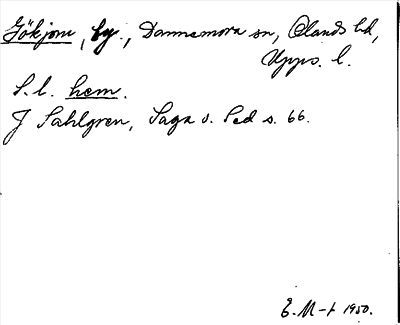 Gökjom, by., Dannemora sn, Olands hd,
Upps. l.
S.l. hem.
J Sahlgren, Saga o. Sed s. 66.
E. M-t 1950.